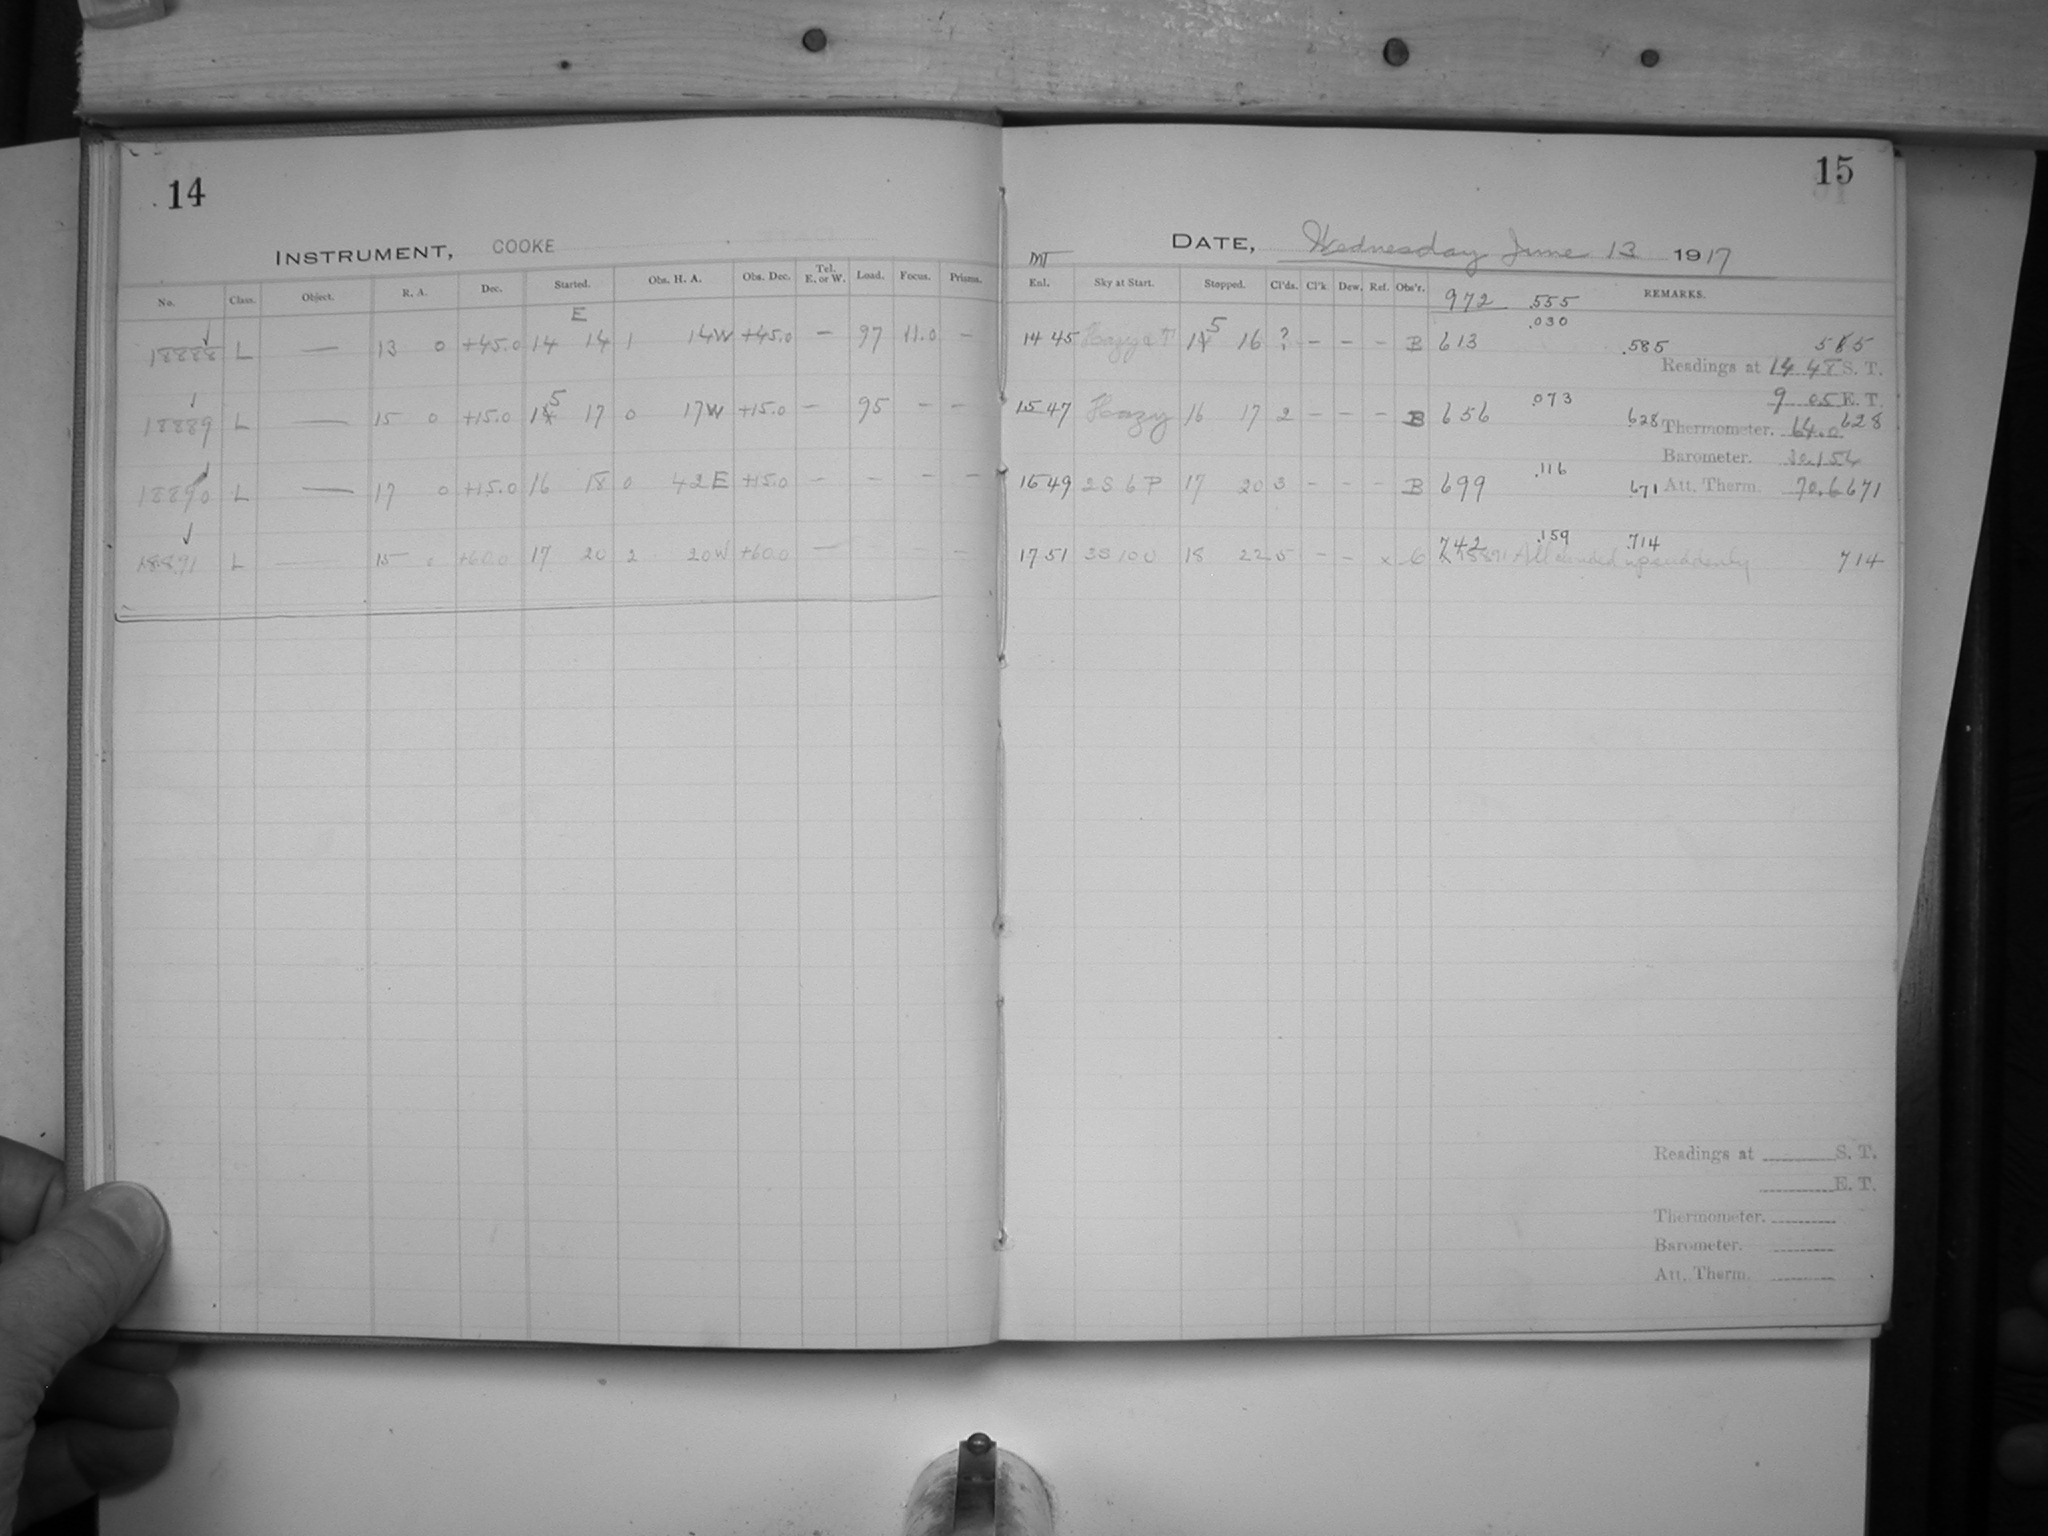 14
INSTRUMENT, COOKE
No. Class. Object. R. A. Dec. Started. Obs. H. A. Obs. Dec. Tel. E. or W. Load. Focus. Prisms.
E
18888 L — 13 0 +45.0 14 14 1 14W +45.0 — 97 11.0 —
18889 L — 15 0 +15.0 15 17 0 17W +15.0 — 95 — —
18890 L — 17 0 +15.0 16 18 0 42E +15.0 — — — —
18891 L — 15 0 +60.0 17 20 2 20W +60.0 — — —
15
DATE, Wednesday June 13 1917
Enl. Sky at Start. Stopped. Cl'ds. Cl'k. Dew. Ref. Obs'r. REMARKS.
972 .555
.030
14 45 15 16 ? — — — B 613 .585 585
Readings at 14 48 S. T.
9 05 E. T.
15 47 Hazy 16 17 2 — — — B 656 .073 628 628
Thermometer. 64.0
Barometer. 30.154
16 49 2S 6P 17 20 3 — — — B 699 .116 .671 671
Att. Therm. 70.6
17 51 3S 10U 18 22 5 — — x 742 .159 .714
18891 All clouded up suddenly 714
Readings at S. T.
E. T.
Thermometer.
Barometer.
Att. Therm.